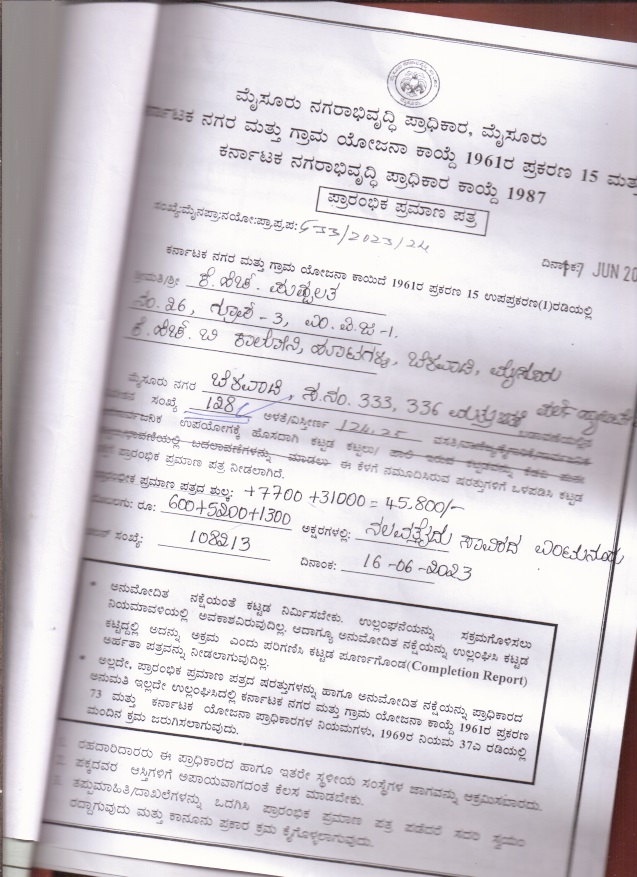 ಮೈಸೂರು ನಗರಾಭಿವೃದ್ಧಿ ಪ್ರಾಧಿಕಾರ, ಮೈಸೂರು
ಕರ್ನಾಟಕ ನಗರ ಮತ್ತು ಗ್ರಾಮ ಯೋಜನಾ ಕಾಯ್ದೆ 1961ರ ಪ್ರಕರಣ 15 ಮತ್ತು
ಕರ್ನಾಟಕ ನಗರಾಭಿವೃದ್ಧಿ ಪ್ರಾಧಿಕಾರ ಕಾಯ್ದೆ 1987
ಪ್ರಾರಂಭಿಕ ಪ್ರಮಾಣ ಪತ್ರ
ಸಂಖ್ಯೆ:ಮೈನಪ್ರಾ:ನಯೋ:ಪ್ರಾ.ಪ್ರ.ಪ: 633/2023/24
ದಿನಾಂಕ: 17 JUN 20
ಕರ್ನಾಟಕ ನಗರ ಮತ್ತು ಗ್ರಾಮ ಯೋಜನಾ ಕಾಯಿದೆ 1961ರ ಪ್ರಕರಣ 15 ಉಪಪ್ರಕರಣ(1)ರಡಿಯಲ್ಲಿ
ಶ್ರೀಮತಿ/ಶ್ರೀ ಕೆ.ಹೆಚ್. ಪುಷ್ಪಲತ
ನಂ. 26, ಗ್ರೂಪ್ - 3, ಎಂ.ವಿ.ಜಿ -1.
ಕೆ.ಹೆಚ್.ಬಿ ಕಾಲೋನಿ, ಹೂಟಗಳ್ಳಿ, ಬೆಳವಾಡಿ, ಮೈಸೂರು
ಮೈಸೂರು ನಗರ ಬೆಳವಾಡಿ, ಸ.ನಂ. 333, 336 ಬಡಾವಣೆಯಲ್ಲಿನ
ನಿವೇಶನ ಸಂಖ್ಯೆ 128 ಅಳತೆ/ವಿಸ್ತೀರ್ಣ 124.25 ವಸತಿ/ವಾಣಿಜ್ಯ/ಕೈಗಾರಿಕೆ/
ಸಾರ್ವಜನಿಕ ಉಪಯೋಗಕ್ಕೆ ಹೊಸದಾಗಿ ಕಟ್ಟಡ ಕಟ್ಟಲು/ ಹಾಲಿ ಇರುವ ಕಟ್ಟಡವನ್ನು ಕೆಡವಿ
ಬದಲಾವಣೆಗಳನ್ನು ಮಾಡಲು ಈ ಕೆಳಗೆ ನಮೂದಿಸಿರುವ ಷರತ್ತುಗಳಿಗೆ ಒಳಪಡಿಸಿ ಕಟ್ಟಡ
ಪ್ರಾರಂಭಿಕ ಪ್ರಮಾಣ ಪತ್ರ ನೀಡಲಾಗಿದೆ.
ಪ್ರಾರಂಭಿಕ ಪ್ರಮಾಣ ಪತ್ರದ ಶುಲ್ಕ: +7700 +31000 = 45.800/-
ರೂ: 600+5200+1300 ಅಕ್ಷರಗಳಲ್ಲಿ: ನಲವತ್ತೈದು ಸಾವಿರದ ಎಂಟುನೂರು
ಸಂಖ್ಯೆ: 108213 ದಿನಾಂಕ: 16-06-2023
* ಅನುಮೋದಿತ ನಕ್ಷೆಯಂತೆ ಕಟ್ಟಡ ನಿರ್ಮಿಸಬೇಕು. ಉಲ್ಲಂಘನೆಯನ್ನು ಸಕ್ರಮಗೊಳಿಸಲು
ನಿಯಮಾವಳಿಯಲ್ಲಿ ಅವಕಾಶವಿರುವುದಿಲ್ಲ. ಆದಾಗ್ಯೂ ಅನುಮೋದಿತ ನಕ್ಷೆಯನ್ನು ಉಲ್ಲಂಘಿಸಿ ಕಟ್ಟಡ
ಕಟ್ಟಿದ್ದಲ್ಲಿ ಅದನ್ನು ಅಕ್ರಮ ಎಂದು ಪರಿಗಣಿಸಿ ಕಟ್ಟಡ ಪೂರ್ಣಗೊಂಡ(Completion Report)
ಅರ್ಹತಾ ಪತ್ರವನ್ನು ನೀಡಲಾಗುವುದಿಲ್ಲ.
* ಅಲ್ಲದೇ, ಪ್ರಾರಂಭಿಕ ಪ್ರಮಾಣ ಪತ್ರದ ಷರತ್ತುಗಳನ್ನು ಹಾಗೂ ಅನುಮೋದಿತ ನಕ್ಷೆಯನ್ನು ಪ್ರಾಧಿಕಾರದ
ಅನುಮತಿ ಇಲ್ಲದೇ ಉಲ್ಲಂಘಿಸಿದಲ್ಲಿ ಕರ್ನಾಟಕ ನಗರ ಮತ್ತು ಗ್ರಾಮ ಯೋಜನಾ ಕಾಯ್ದೆ 1961ರ ಪ್ರಕರಣ
73 ಮತ್ತು ಕರ್ನಾಟಕ ಯೋಜನಾ ಪ್ರಾಧಿಕಾರಗಳ ನಿಯಮಗಳು, 1969ರ ನಿಯಮ 37ಎ ರಡಿಯಲ್ಲಿ
ಮುಂದಿನ ಕ್ರಮ ಜರುಗಿಸಲಾಗುವುದು.
1. ರಹದಾರಿದಾರರು ಈ ಪ್ರಾಧಿಕಾರದ ಹಾಗೂ ಇತರೇ ಸ್ಥಳೀಯ ಸಂಸ್ಥೆಗಳ ಜಾಗವನ್ನು ಆಕ್ರಮಿಸಬಾರದು.
2. ಪಕ್ಕದವರ ಆಸ್ತಿಗಳಿಗೆ ಅಪಾಯವಾಗದಂತೆ ಕೆಲಸ ಮಾಡಬೇಕು.
3. ತಪ್ಪುಮಾಹಿತಿ/ದಾಖಲೆಗಳನ್ನು ಒದಗಿಸಿ ಪ್ರಾರಂಭಿಕ ಪ್ರಮಾಣ ಪತ್ರ ಪಡೆದರೆ ಸದರಿ ಸ್ವಯಂ
ರದ್ದಾಗುವುದು ಮತ್ತು ಕಾನೂನು ಪ್ರಕಾರ ಕ್ರಮ ಕೈಗೊಳ್ಳಲಾಗುವುದು.